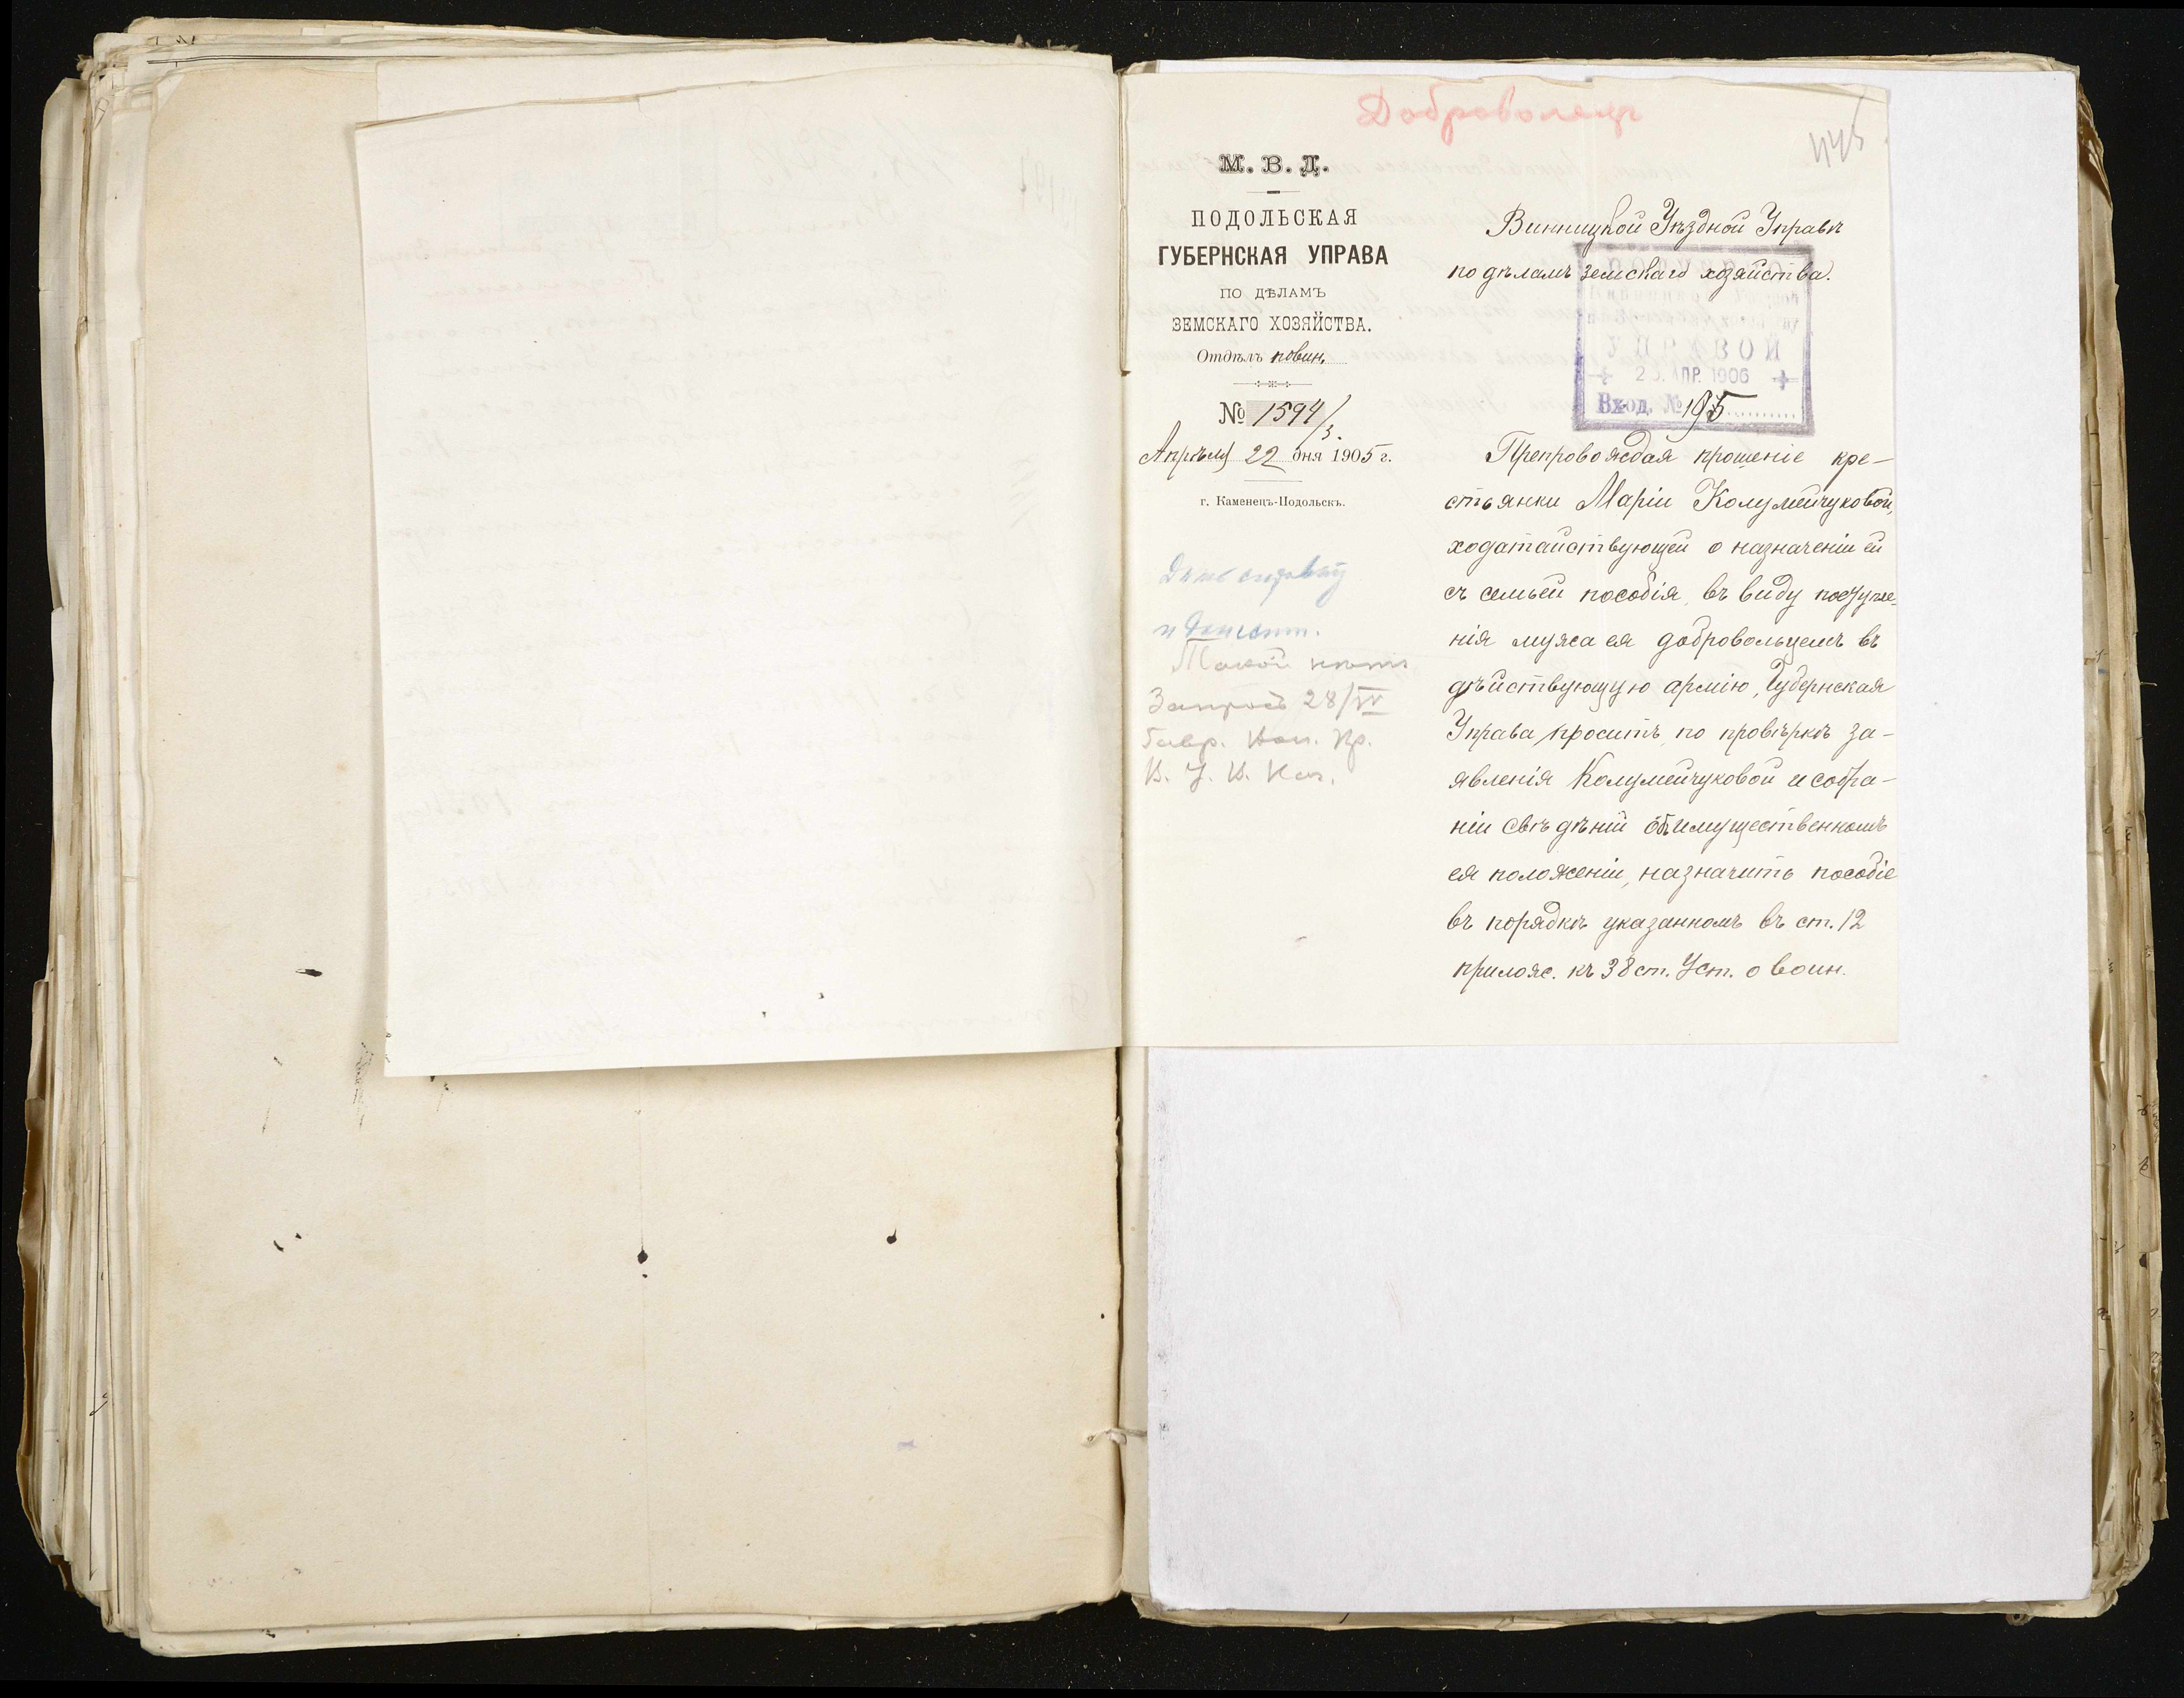 Доброволецъ
445
М. В. Д.
ПОДОЛЬСКАЯ
ГУБЕРНСКАЯ УПРАВА
ПО ДѢЛАМЪ
ЗЕМСКАГО ХОЗЯЙСТВА.
Отдѣлъ повин.
№ 1594/3.
Апрѣля 22 дня 1905 г.
г. Каменецъ-Подольскъ.
справку
Такой нѣтъ
Запросъ 28/IV
Винницкой Уѣздной Управѣ
по дѣламъ земскаго хозяйства.
УПРАВОЙ
АПР. 1906
Вход. № 195
Препровождая прошеніе кре-
стьянки Маріи Колумейчуковой,
ходатайствующей о назначеніи ей
съ семьей пособія, въ виду поступле-
нія мужа ея добровольцемъ въ
дѣйствующую армію, Губернская
Управа проситъ, по провѣркѣ за-
явленія Колумейчуковой и собра-
ніи свѣдѣній объ имущественномъ
ея положеніи, назначить пособіе
въ порядкѣ указанномъ въ ст. 12
прилож. къ 38 ст. Уст. о воин.